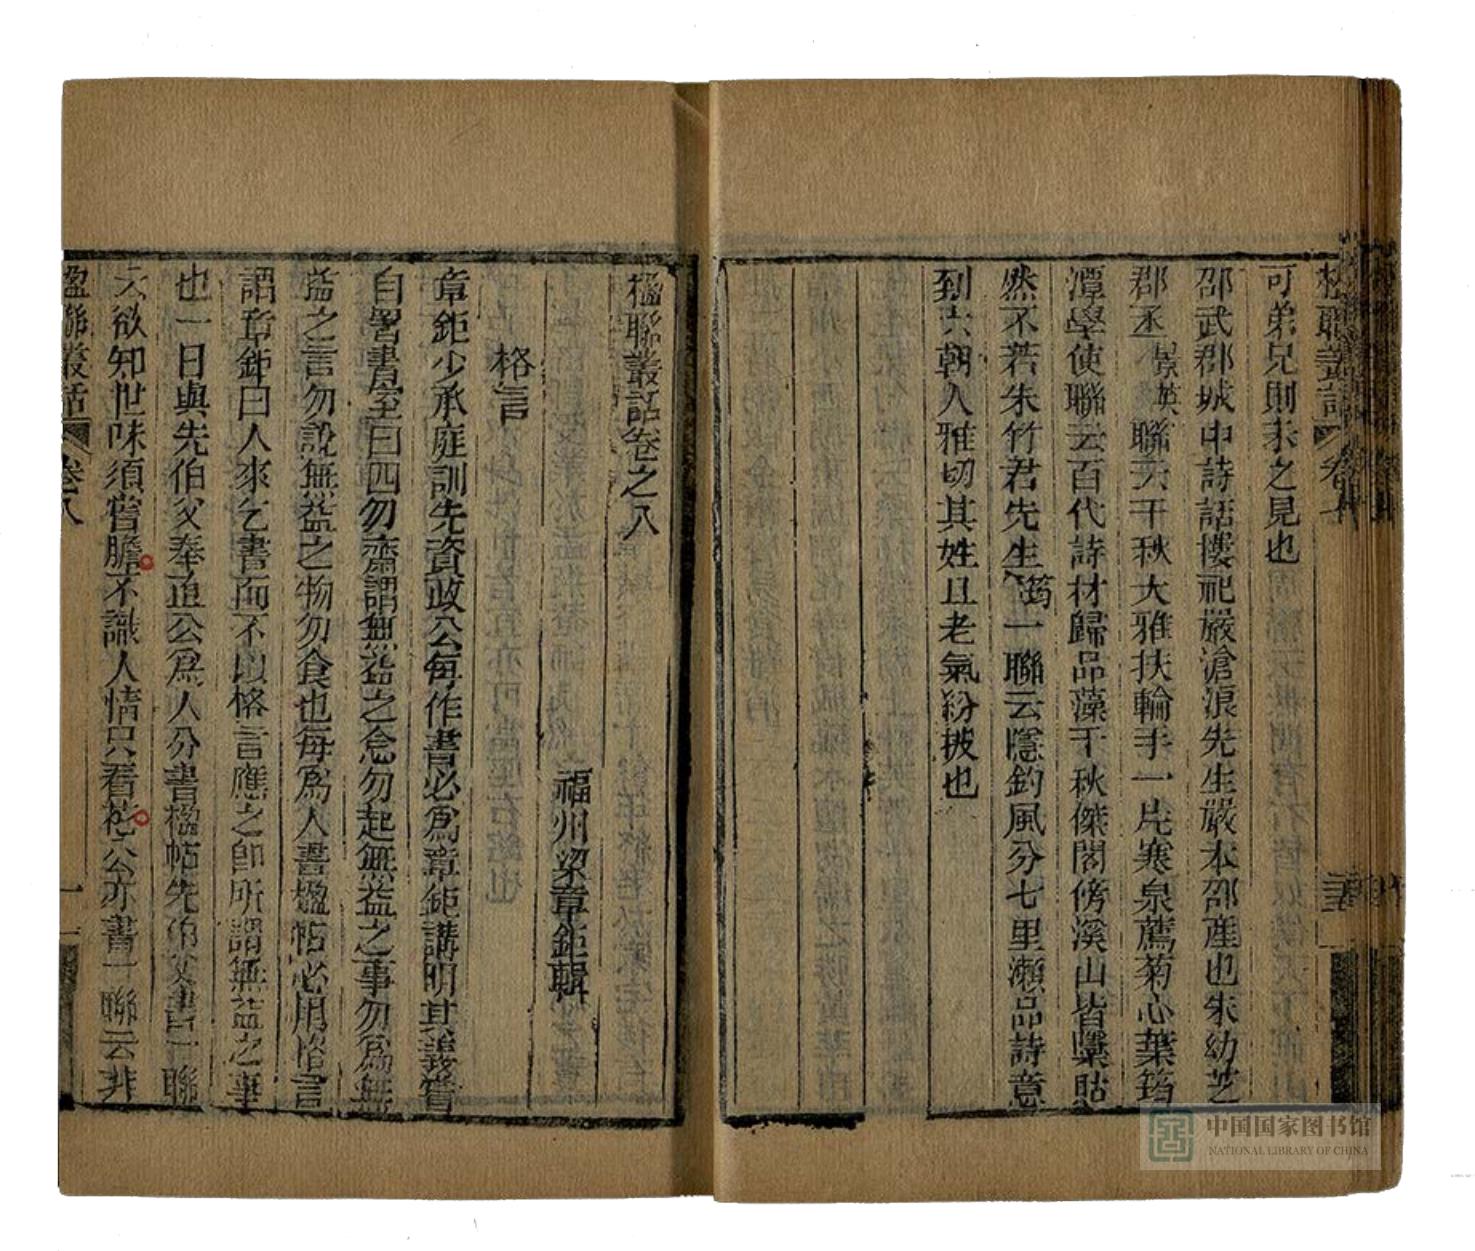 楹聯叢話 卷七
可弟兄則未之見也
邵武郡城中詩話樓祀嚴滄浪先生嚴本邵產也朱幼芝
郡丞景英聯云千秋大雅扶輪手一片寒泉薦菊心葉筠
潭學使聯云百代詩材歸品藻千秋傑閣傍溪山皆櫽貼
然不若朱竹君先生筠一聯云隱釣風分七里瀨品詩意
到六朝人雅切其姓且老氣紛披也
楹聯叢話卷之八
福州梁章鉅輯
格言
章鉅少承庭訓先資政公每作書必爲章鉅講明其義嘗
自署書室曰四勿齋謂無益之念勿起無益之事勿爲無
益之言勿說無益之物勿食也每爲人書楹帖必用格言
謂章鉅曰人來乞書而不以格言應之卽所謂無益之事
也一日與先伯父奉直公爲人分書楹帖先伯父書一聯
云欲知世味須嘗膽不識人情只看花公亦書一聯云非
楹聯叢話 卷八 一
中国国家图书馆
NATIONAL LIBRARY OF CHINA